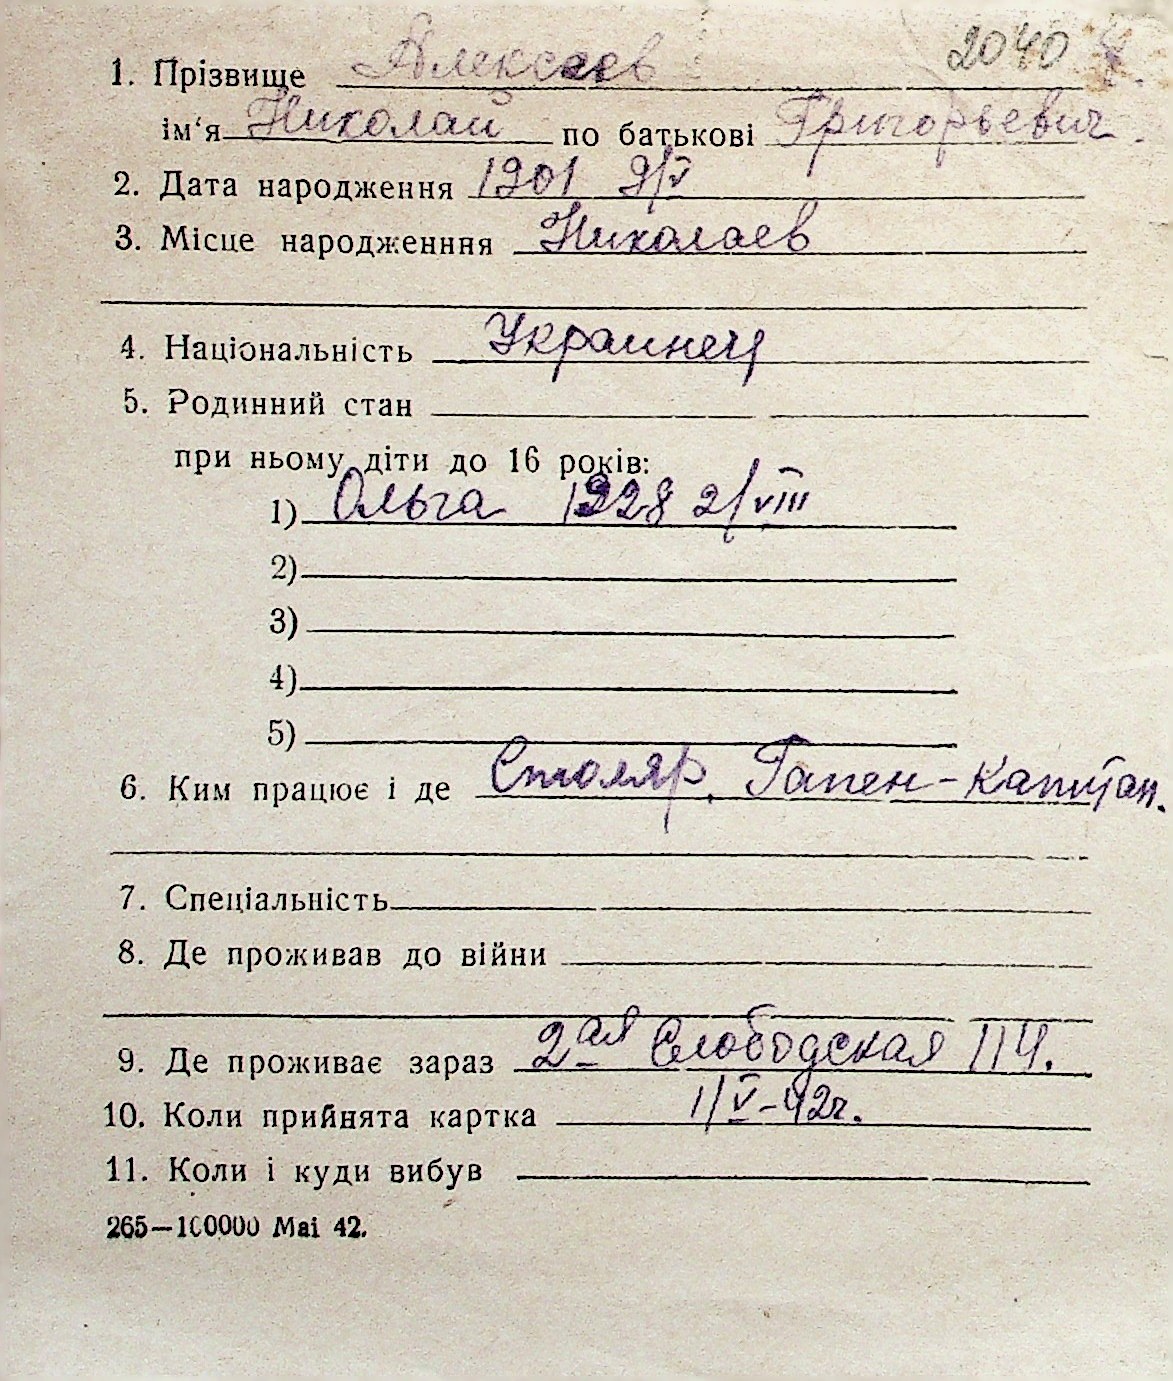 2040
1. Прізвище Алексеев
ім'я Николай по батькові Григорьевич
2. Дата народження 1901 9/V
3. Місце народженння Николаев
4. Національність Украинец
5. Родинний стан
при ньому діти до 16 років:
1) Ольга 1928 2/VIII
2)
3)
4)
5)
6. Ким працює і де Столяр, Гапен-Капитан.
7. Спеціальність
8. Де проживав до війни
9. Де проживає зараз 2ая Слободская 114.
10. Коли прийнята картка 1/V-42г.
11. Коли і куди вибув
265—100000 Mai 42.